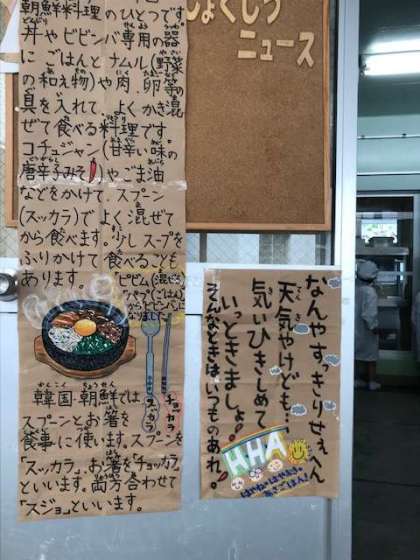 しょくしつ
ニュース
朝鮮料理のひとつです。
丼やビビンバ専用の器
にごはんとナムル(野菜
の和え物)や肉、卵等の
具を入れて、よくかき混
ぜて食べる料理です。
コチュジャン(甘辛い味の
唐辛子みそ)やごま油
などをかけて、スプーン
(スッカラ)でよく混ぜて
から食べます。少しスープを
ふりかけて食べることも
あります。
ピビム(混ぜる)
パプ(ごはん)
からビビンバに
なりました!
スッカラ
チョッカラ
韓国・朝鮮では
スプーンとお箸を
食事に使います。スプーンを
「スッカラ」、お箸を「チョッカラ」
といいます。両方合わせて
「スジョ」といいます。
なんやすっきりせぇへん
天気やけども、
気ぃひきしめて
いっときましょ!
そんなときはいつものあれ!
HHA
はやね・はやおき・
あさごはん!